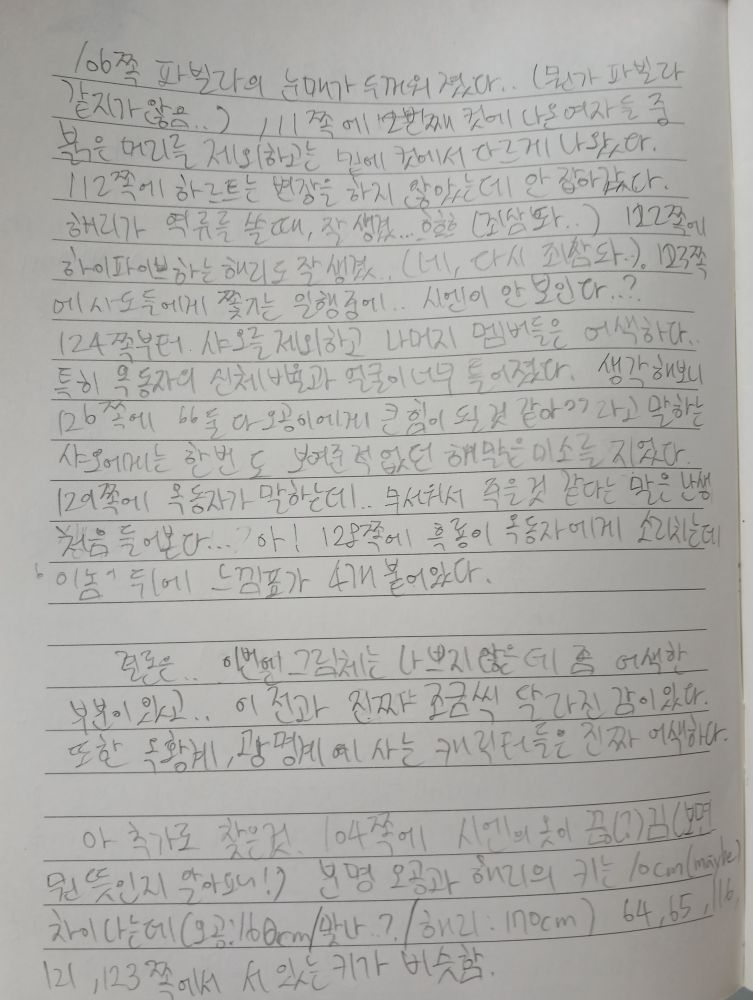 106쪽 파빌라의 눈매가 두꺼워 졌다.. (뭔가 파빌라
같지가 않음..) , 111쪽에 2번째 컷에 나온 여자들 중
붉은 머리를 제외하고는 밑에 컷에서 다르게 나왔다.
112쪽에 하르트는 변장을 하지 않았는데 안 잡아갔다.
해리가 역류를 쓸 때, 잘 생겼... (죄삼돠..) 122쪽에
하이파이브하는 해리도 잘 생겼.. (네, 다시 죄삼돠..). 123쪽
에 사도들에게 쫓기는 일행중에.. 시엔이 안 보인다..?
124쪽부터. 샤오를 제외하고 나머지 멤버들은 어색하다..
특히 옥동자의 신체비율과 얼굴이 너무 틀어졌다. 생각해보니
126쪽에 "둘 다 오공이에게 큰 힘이 될 것 같아"라고 말하는
샤오에게는 한번 도 보여준적 없던 해맑은 미소를 지었다.
129쪽에 옥동자가 말하는데.. 무서워서 죽을것 같다는 말은 난생
처음 들어본다... 아! 128쪽에 흑룡이 옥동자에게 소리치는데
'이놈' 뒤에 느낌표가 4개 붙어있다.
결론은.. 이번엔 그림체는 나쁘지 않은 데 좀 어색한
부분이 있고.. 이 전과 진짜 조금씩 달라진 감이 있다.
또한 옥황계, 광명계에 사는 캐릭터들은 진짜 어색하다.
아 추가로 찾은것. 104쪽에 시엔의 옷이 끊(?)김 (보면
뭔 뜻인지 알아요!) 분명 오공과 해리의 키는 10cm(maybe)
차이나는데 (오공:160cm/맞나..?/해리:170cm) 64, 65, 116,
121, 123쪽에서 서 있는 키가 비슷함.